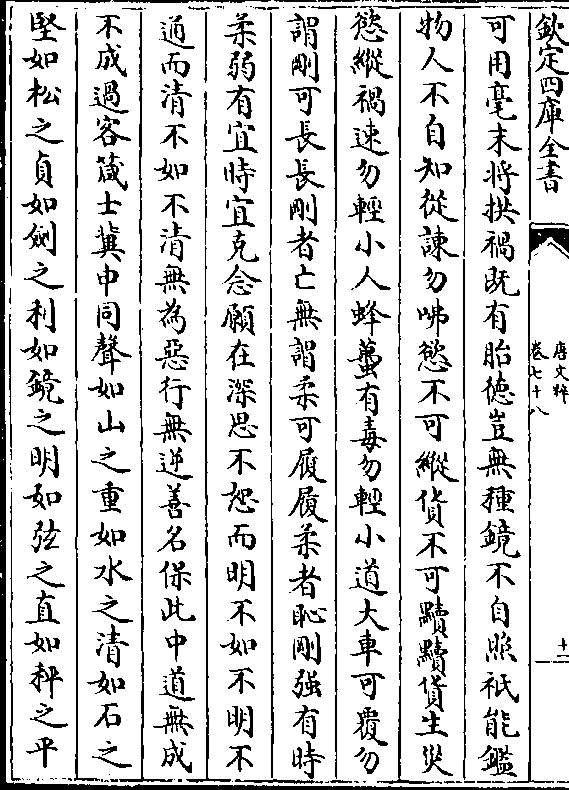 欽定四庫全書
唐文粹
卷七十八
十二
可用毫末將拱禍既有胎德豈無種鏡不自照祇能鑑
物人不自知從諫勿咈慾不可縱貨不可黷黷貨生災
慾縱禍速勿輕小人蜂蠆有毒勿輕小道大車可覆勿
謂剛可長長剛者亡無謂柔可履履柔者恥剛强有時
柔弱有宜時宜克念願在深思不恕而明不如不明不
通而清不如不清無為惡行無逆善名保此中道無成
不成過客箴士冀申同聲如山之重如水之清如石之
堅如松之貞如劍之利如鏡之明如弦之直如秤之平